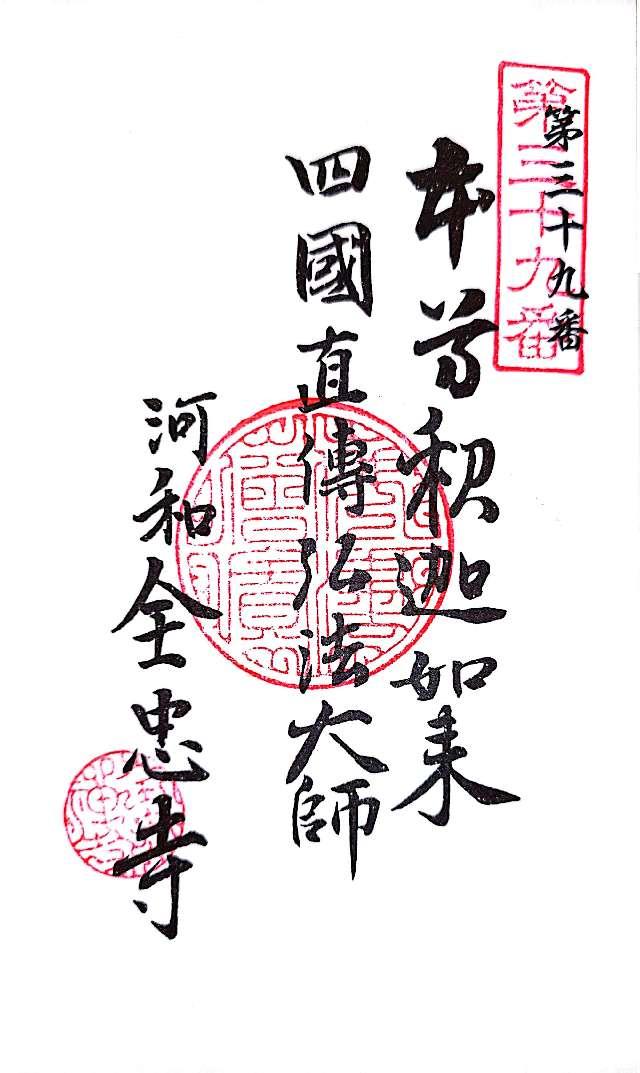 第三十九番
第三十九番
本尊釈迦如来
四國直傳弘法大師
河和全忠寺